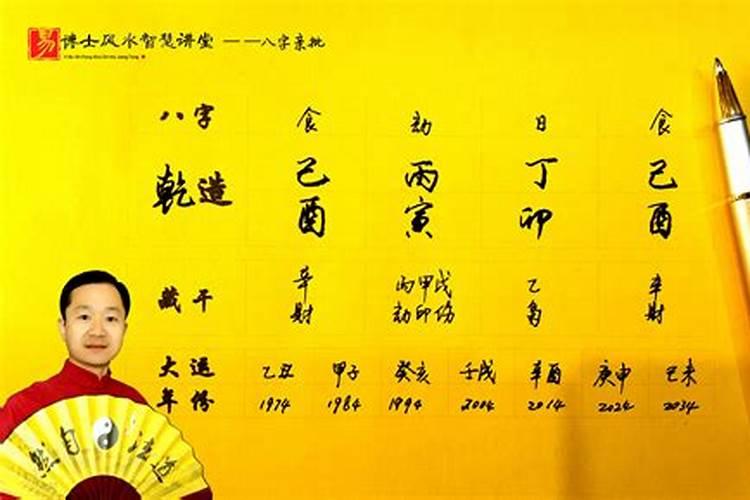 易 博士风水智慧讲堂 ——八字亲批
八字 食 劫 日 食
乾造 己 丙 丁 己
酉 寅 卯 酉
藏干 辛 丙甲戊 乙 辛
财 劫印伤 枭 财
大运 乙丑 甲子 癸亥 壬戌 辛酉 庚申 己未
年份 1974 1984 1994 2004 2014 2024 2034
法道自然